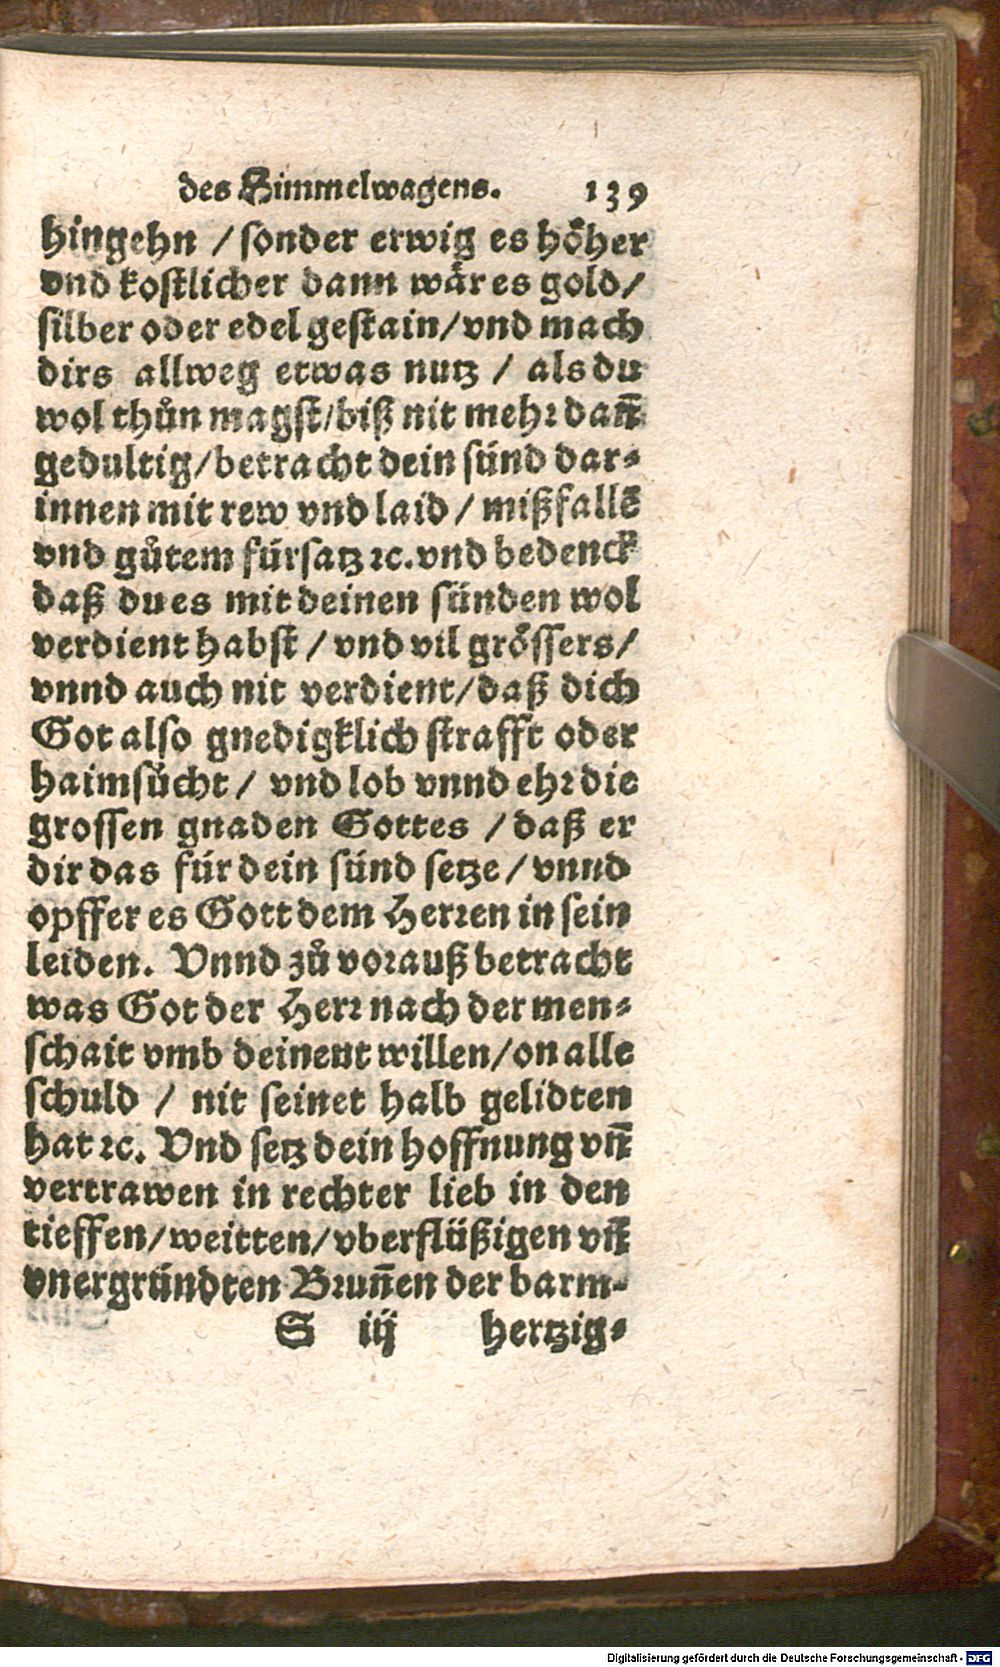 des Himmelwagens. 139
hingehn / sonder erwig es hoͤher
vnd kostlicher dann waͤr es gold/
silber oder edel gestain/ vnd mach
dirs allweg etwas nutz / als du
wol thůn magst/ biß nit mehr dañ
gedultig/ betracht dein sünd dar-
innen mit rew vnd laid / mißfallē
vnd gůtem fürsatz ꝛc. vnd bedenck
daß du es mit deinen sünden wol
verdient habst / vnd vil groͤssers/
vnnd auch nit verdient/ daß dich
Got also gnedigklich strafft oder
haimsůcht / vnd lob vnnd ehr die
grossen gnaden Gottes / daß er
dir das für dein sünd setze / vnnd
opffer es Gott dem Herren in sein
leiden. Vnnd zů vorauß betracht
was Got der Herr nach der men-
schait vmb deinent willen/ on alle
schuld / nit seinet halb gelidten
hat ꝛc. Vnd setz dein hoffnung vñ
vertrawen in rechter lieb in den
tieffen/ weitten/ vberflüßigen vñ
vnergründten Bruñen der barm-
S iij hertzig-
Digitalisierung gefördert durch die Deutsche Forschungsgemeinschaft - DFG